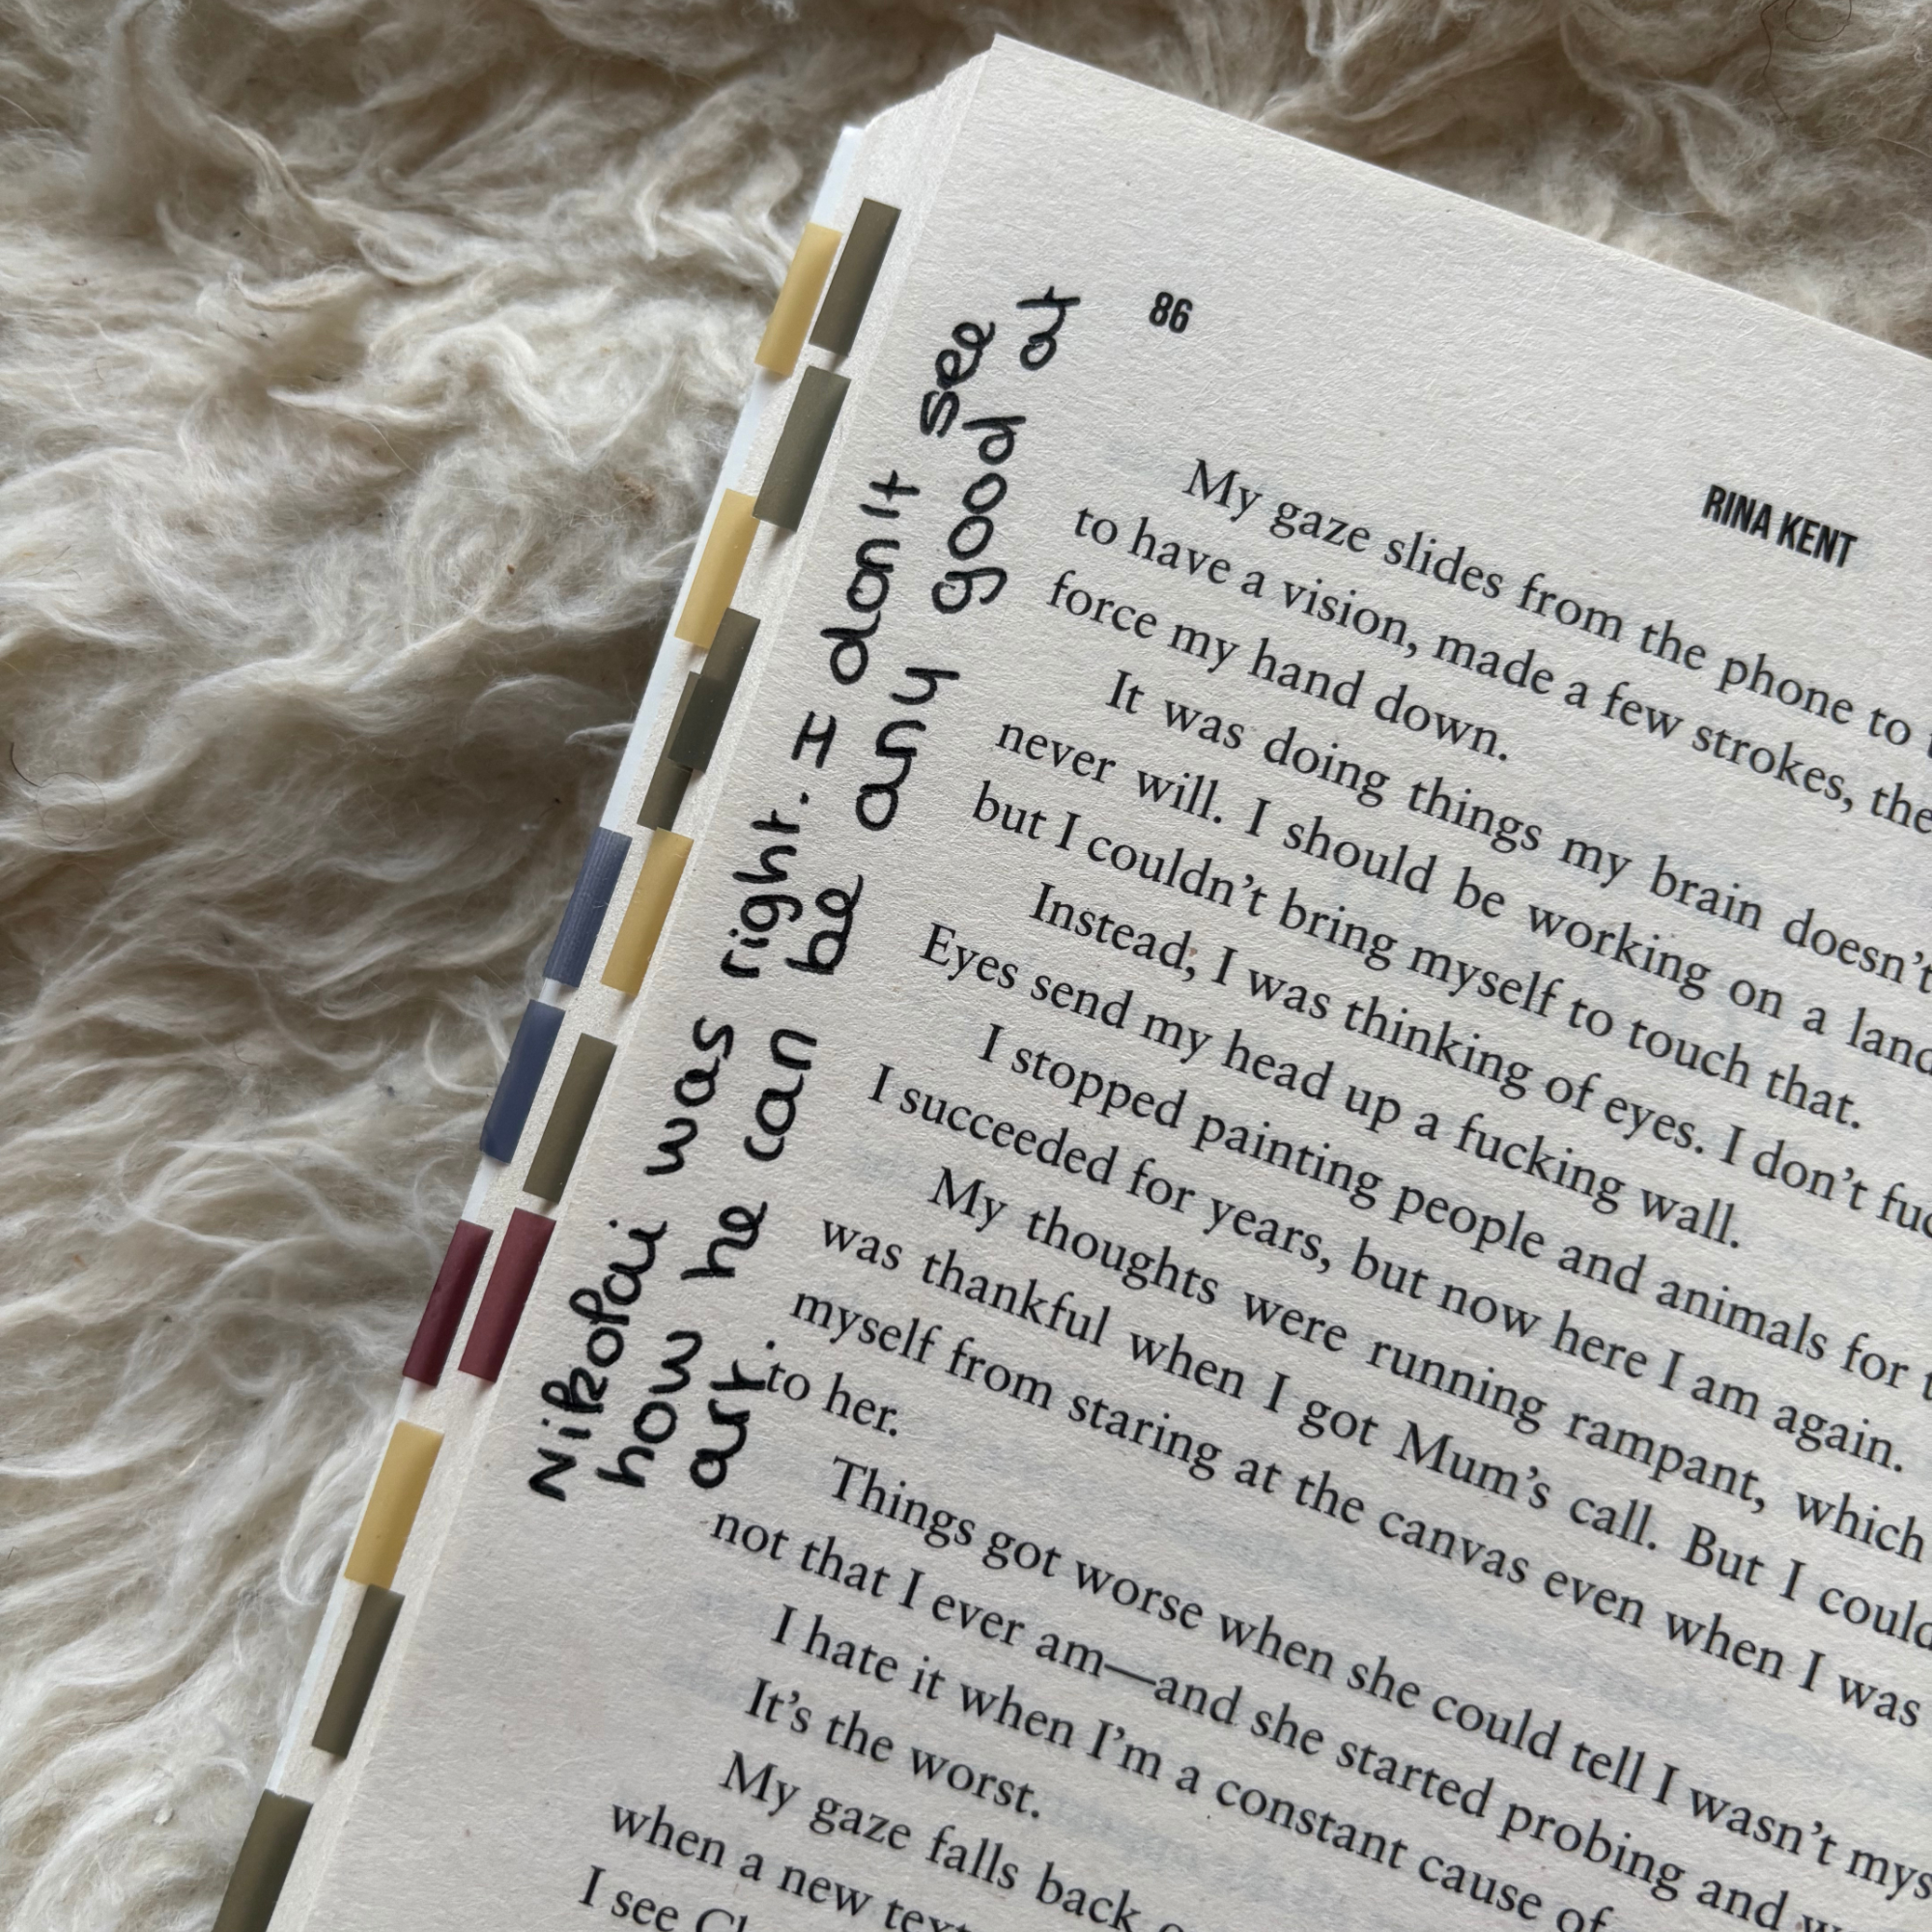 86
RINA KENT
Nikolai was right. I don't see
how he can be any good at
art.
My gaze slides from the phone to
to have a vision, made a few strokes, the
force my hand down.
It was doing things my brain doesn't
never will. I should be working on a land
but I couldn't bring myself to touch that.
Instead, I was thinking of eyes. I don't fuc
Eyes send my head up a fucking wall.
I stopped painting people and animals for
I succeeded for years, but now here I am again.
My thoughts were running rampant, which
was thankful when I got Mum's call. But I could
myself from staring at the canvas even when I was
to her.
Things got worse when she could tell I wasn't mys
not that I ever am—and she started probing and
I hate it when I'm a constant cause of
It's the worst.
My gaze falls back
when a new text
I see